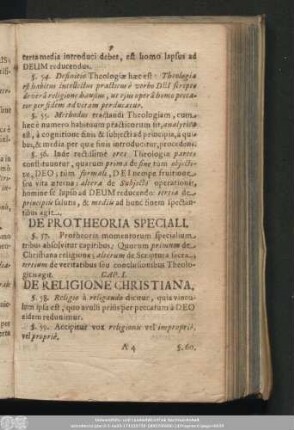 certa media introduci debet, est homo lapsus ad
DEUM reducendus.
§. 54. Definitio Theologiæ hæc est: Theologia
est habitus intellectus practicus è verbo DEI scripto
de verâ religione haustus, ut ejus operâ homo pecca-
tor per fidem ad vitam perducatur.
§. 55. Methodus tractandi Theologiam, cum
hæc è numero habituum practicorum sit, analytica
est, à cognitione finis & subjecti ad principia, à qui-
bus, & media per quæ finis introducitur, procedens.
§. 56. Inde rectissimè tres Theologiæ partes
constituuntur, quarum prima de fine tum objecti-
vo, DEO; tum formali, DEI nempe fruitione,
seu vita æterna; altera de Subjecto operationis,
homine sc. lapso ad DEUM reducendo; tertia de
principiis salutis, & mediis ad hunc finem spectan-
tibus agit.
DE PROTHEORIA SPECIALI.
§. 57. Protheoria momentorum specialium
tribus absolvitur capitibus; Quorum primum de
Christiana religione; alterum de Scriptura sacra,
tertium de veritatibus seu conclusionibus Theolo-
gicis agit. CAP. I.
DE RELIGIONE CHRISTIANA,
§. 58. Religio à religando dicitur, quia vincu-
lum ipsa est, quo avulsi prius per peccatum à DEO
eidem redunimur.
§. 59. Accipitur vox religionis vel impropriè,
vel propriè,
A 4 §. 60.